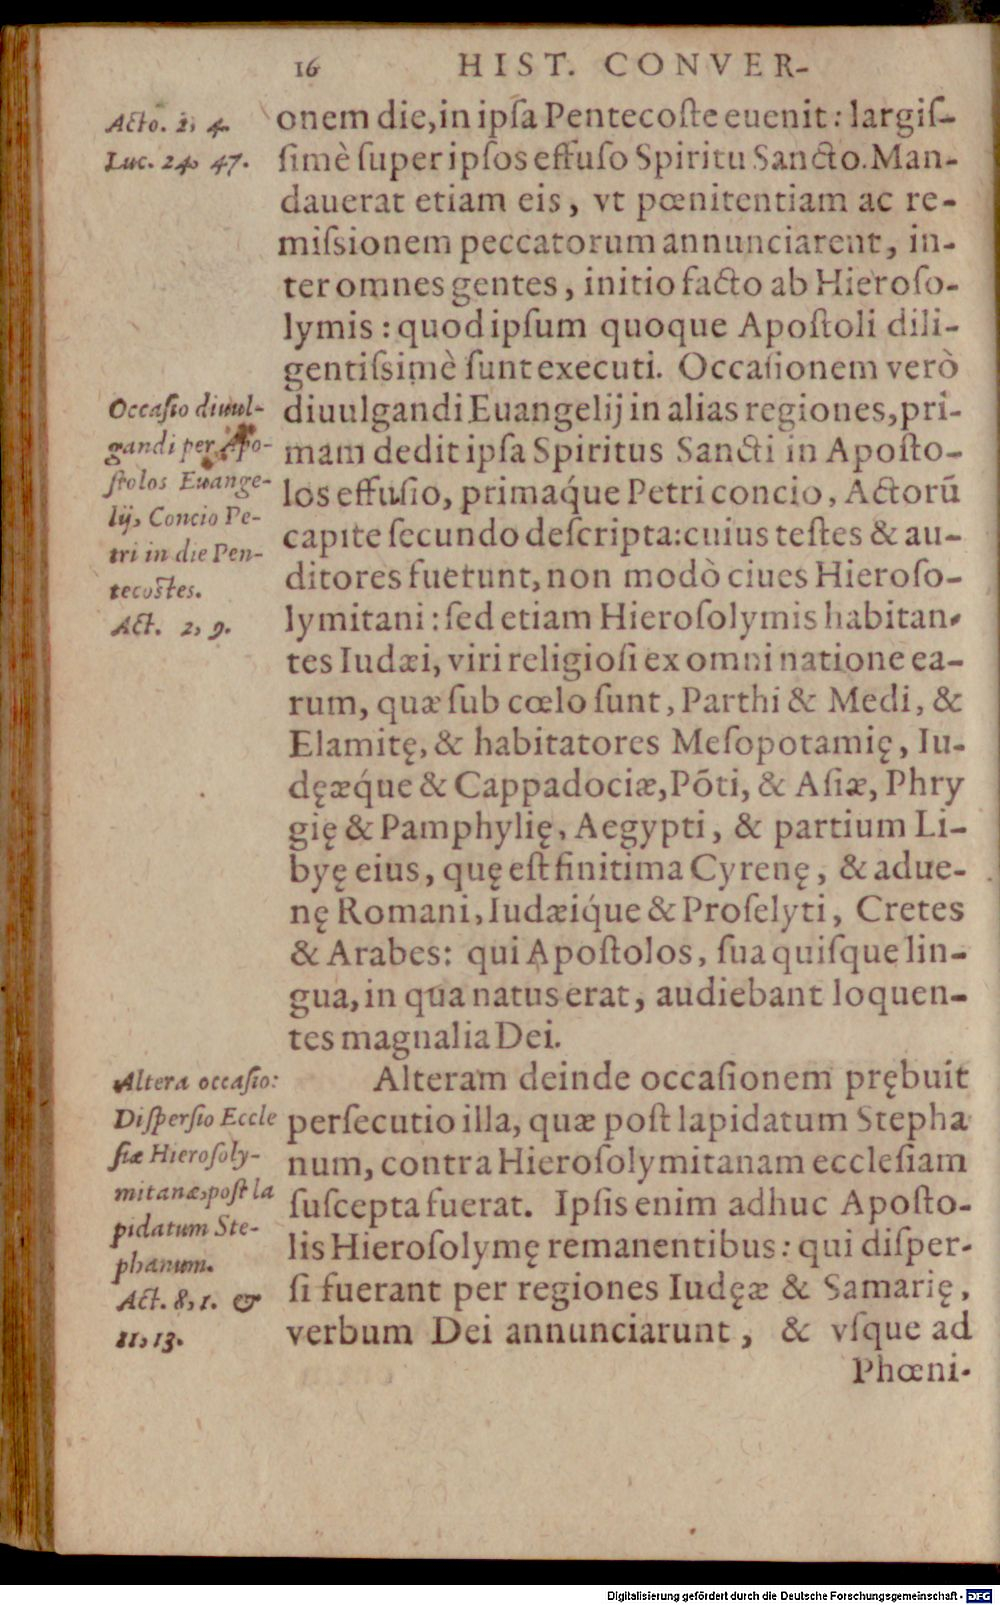 16 HIST. CONVER-
Acto. 2, 4.
Luc. 24, 47.
onem die, in ipſa Pentecoſte euenit: largiſ-
ſimè ſuper ipſos effuſo Spiritu Sancto. Man-
dauerat etiam eis, vt pœnitentiam ac re-
miſsionem peccatorum annunciarent, in-
ter omnes gentes, initio facto ab Hieroſo-
lymis: quod ipſum quoque Apoſtoli dili-
gentiſsimè ſunt executi. Occaſionem verò
Occaſio diuul-
gandi per Apo-
ſtolos Euange-
lij, Concio Pe-
tri in die Pen-
tecoſtes.
Act. 2, 9.
diuulgandi Euangelij in alias regiones, pri-
mam dedit ipſa Spiritus Sancti in Apoſto-
los effuſio, primaq́ue Petri concio, Actorũ
capite ſecundo deſcripta: cuius teſtes & au-
ditores fuerunt, non modò ciues Hieroſo-
lymitani: ſed etiam Hieroſolymis habitan-
tes Iudæi, viri religioſi ex omni natione ea-
rum, quæ ſub cœlo ſunt, Parthi & Medi, &
Elamitę, & habitatores Meſopotamię, Iu-
dęæq́ue & Cappadociæ, Põti, & Aſiæ, Phry
gię & Pamphylię, Aegypti, & partium Li-
byę eius, quę eſt finitima Cyrenę, & adue-
nę Romani, Iudæiq́ue & Proſelyti, Cretes
& Arabes: qui Apoſtolos, ſua quiſque lin-
gua, in qua natus erat, audiebant loquen-
tes magnalia Dei.
Altera occaſio:
Diſperſio Eccle
ſiæ Hieroſoly-
mitanæ, poſt la
pidatum Ste-
phanum.
Act. 8, 1. &
11, 13.
Alteram deinde occaſionem prębuit
perſecutio illa, quæ poſt lapidatum Stepha
num, contra Hieroſolymitanam eccleſiam
ſuſcepta fuerat. Ipſis enim adhuc Apoſto-
lis Hieroſolymę remanentibus: qui diſper-
ſi fuerant per regiones Iudęæ & Samarię,
verbum Dei annunciarunt, & vſque ad
Phœni-
Digitalisierung gefördert durch die Deutsche Forschungsgemeinschaft - DFG